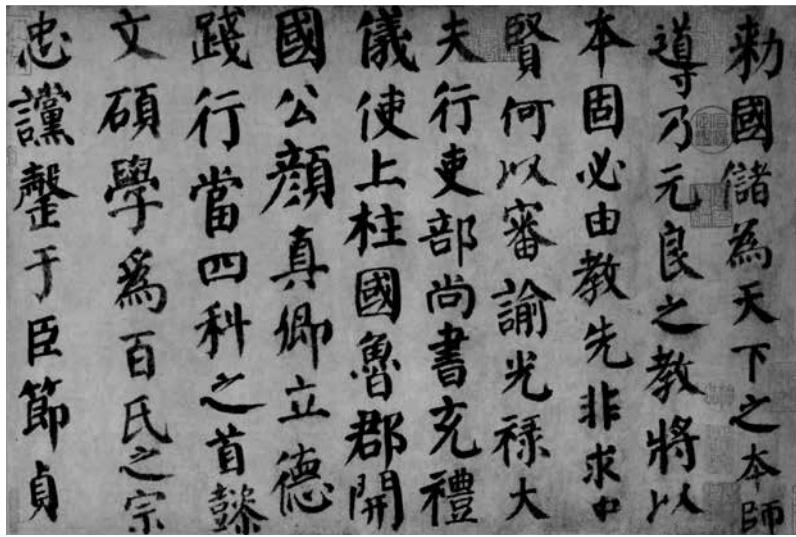 勅國儲為天下之本師
導乃元良之教將以
本固必由教先非求中
賢何以審諭光祿大
夫行吏部尚書充禮
儀使上柱國魯郡開
國公顏真卿立德
踐行當四科之首懿
文碩學爲百氏之宗
忠讜罄于臣節貞